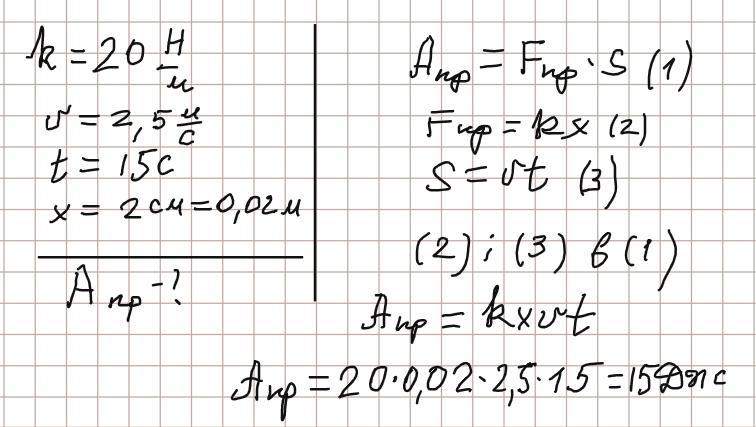 k = 20 Н/м
v = 2,5 м/с
t = 15с
x = 2 см = 0,02м
Aпр - ?
Aпр = Fпр · S (1)
Fпр = kx (2)
S = vt (3)
(2) i (3) в (1)
Aпр = kxvt
Aпр = 20·0,02·2,5·15 = 15Дж с